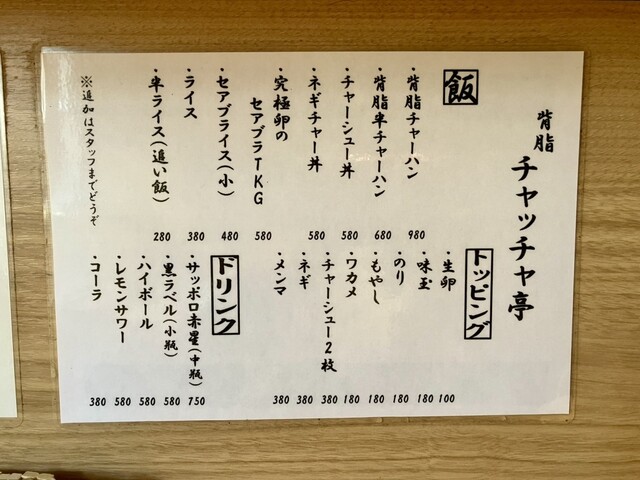 背脂 チャッチャ亭
飯
・背脂チャーハン 980
・背脂半チャーハン 680
・チャーシュー丼 580
・ネギチャー丼 580
・究極卵の
セアブラTKG 580
・セアブライス(小) 480
・ライス 380
・半ライス(追い飯) 280
※追加はスタッフまでどうぞ
トッピング
・生卵 100
・味玉 180
・のり 180
・もやし 180
・ワカメ 180
・チャーシュー2枚 380
・ネギ 380
・メンマ 380
ドリンク
・サッポロ赤星(中瓶) 750
・黒ラベル(小瓶) 580
・ハイボール 580
・レモンサワー 580
・コーラ 380